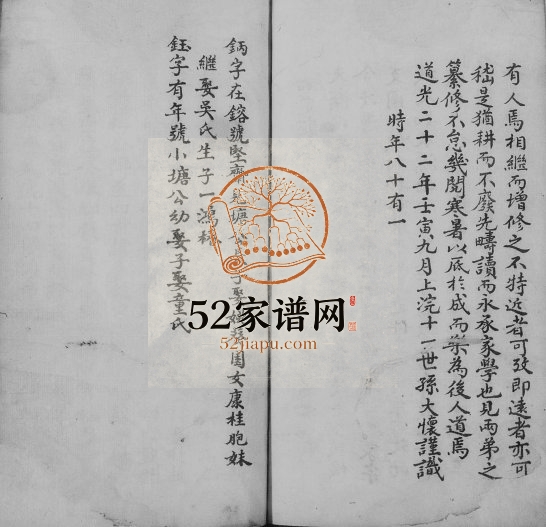 有人焉相繼而增修之不特近者可攷即遠者亦可
嵇是猶耕而不廢先疇讀而永承家學也見兩弟之
纂修不怠幾閱寒暑以底於成而樂為後人道焉
道光二十二年壬寅九月上浣十一世孫大懷謹識
時年八十有一
鈵字在鎔號堅齋 女康桂胞妹
繼娶吳氏生子一鴻
鈺字有年號小塘公幼娶子娶童氏
52家谱网
52jiapu.com